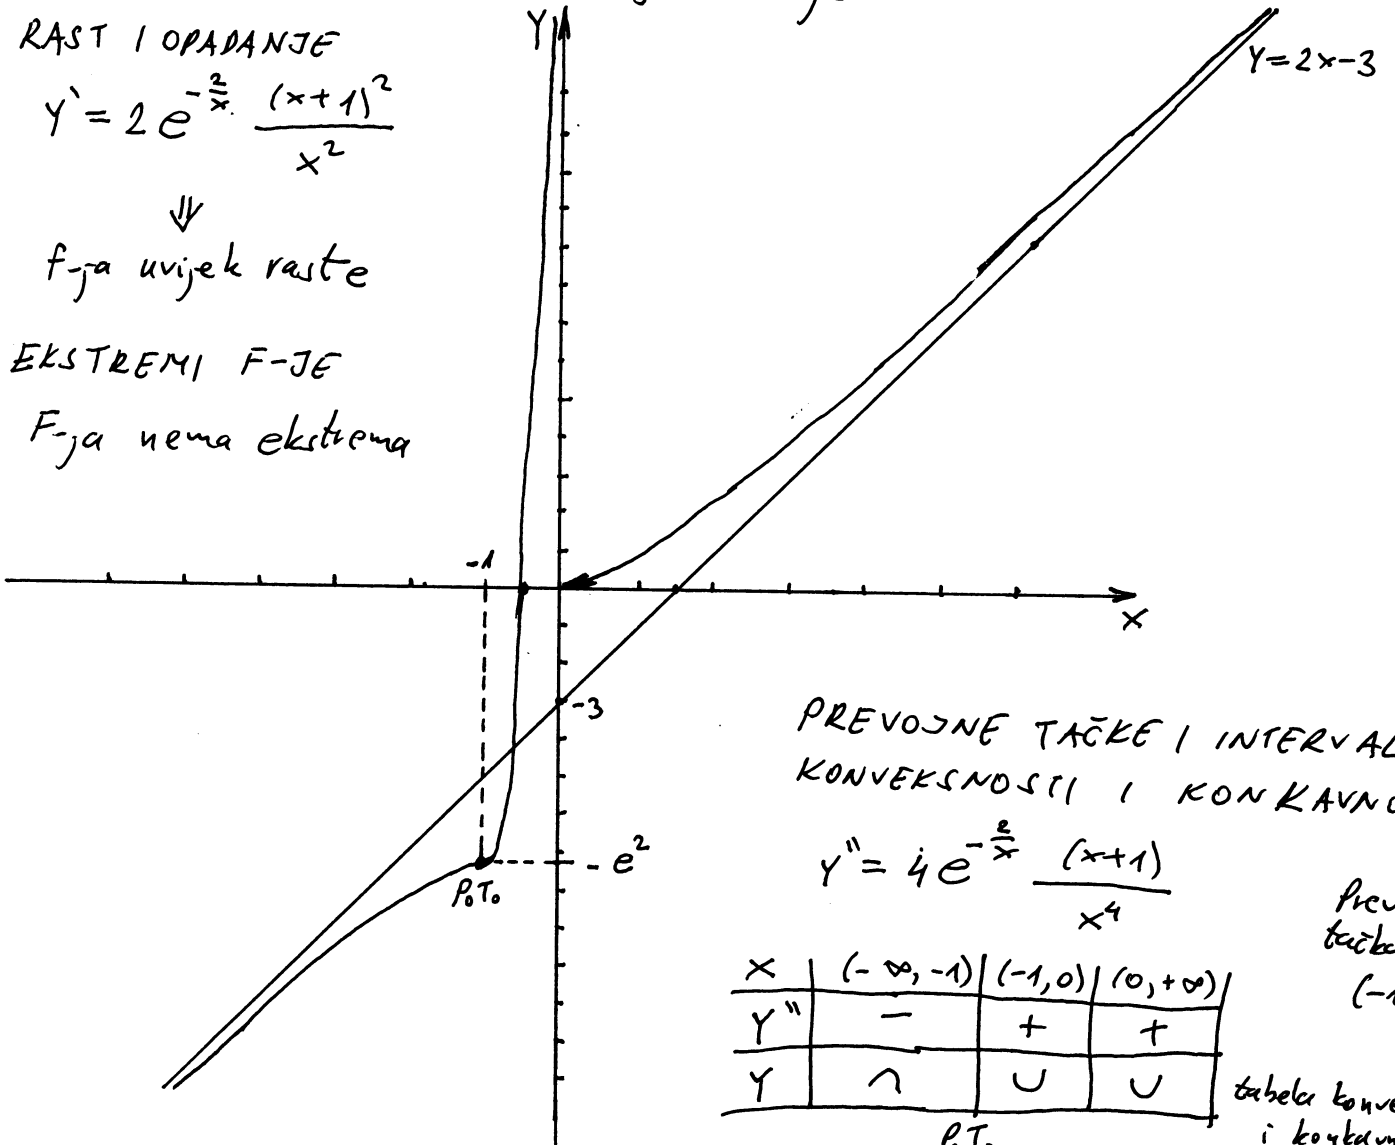 RAST I OPADANJE
Y` = 2 e^{-2/x} (x+1)^2 / x^2
⇓
f-ja uvijek raste
EKSTREMI F-JE
F-ja nema ekstrema
Y
Y=2x-3
-1
X
-3
- e^2
P.T.
PREVOJNE TAČKE I INTERVAL
KONVEKSNOSTI I KONKAVNO
Y" = 4 e^{-2/x} (x+1) / x^4
Prev
tačka
(-1
X | (-∞, -1) | (-1, 0) | (0, +∞) |
Y" | - | + | + |
Y | ∩ | ∪ | ∪ |
P.T.
tabela konve
i konkav